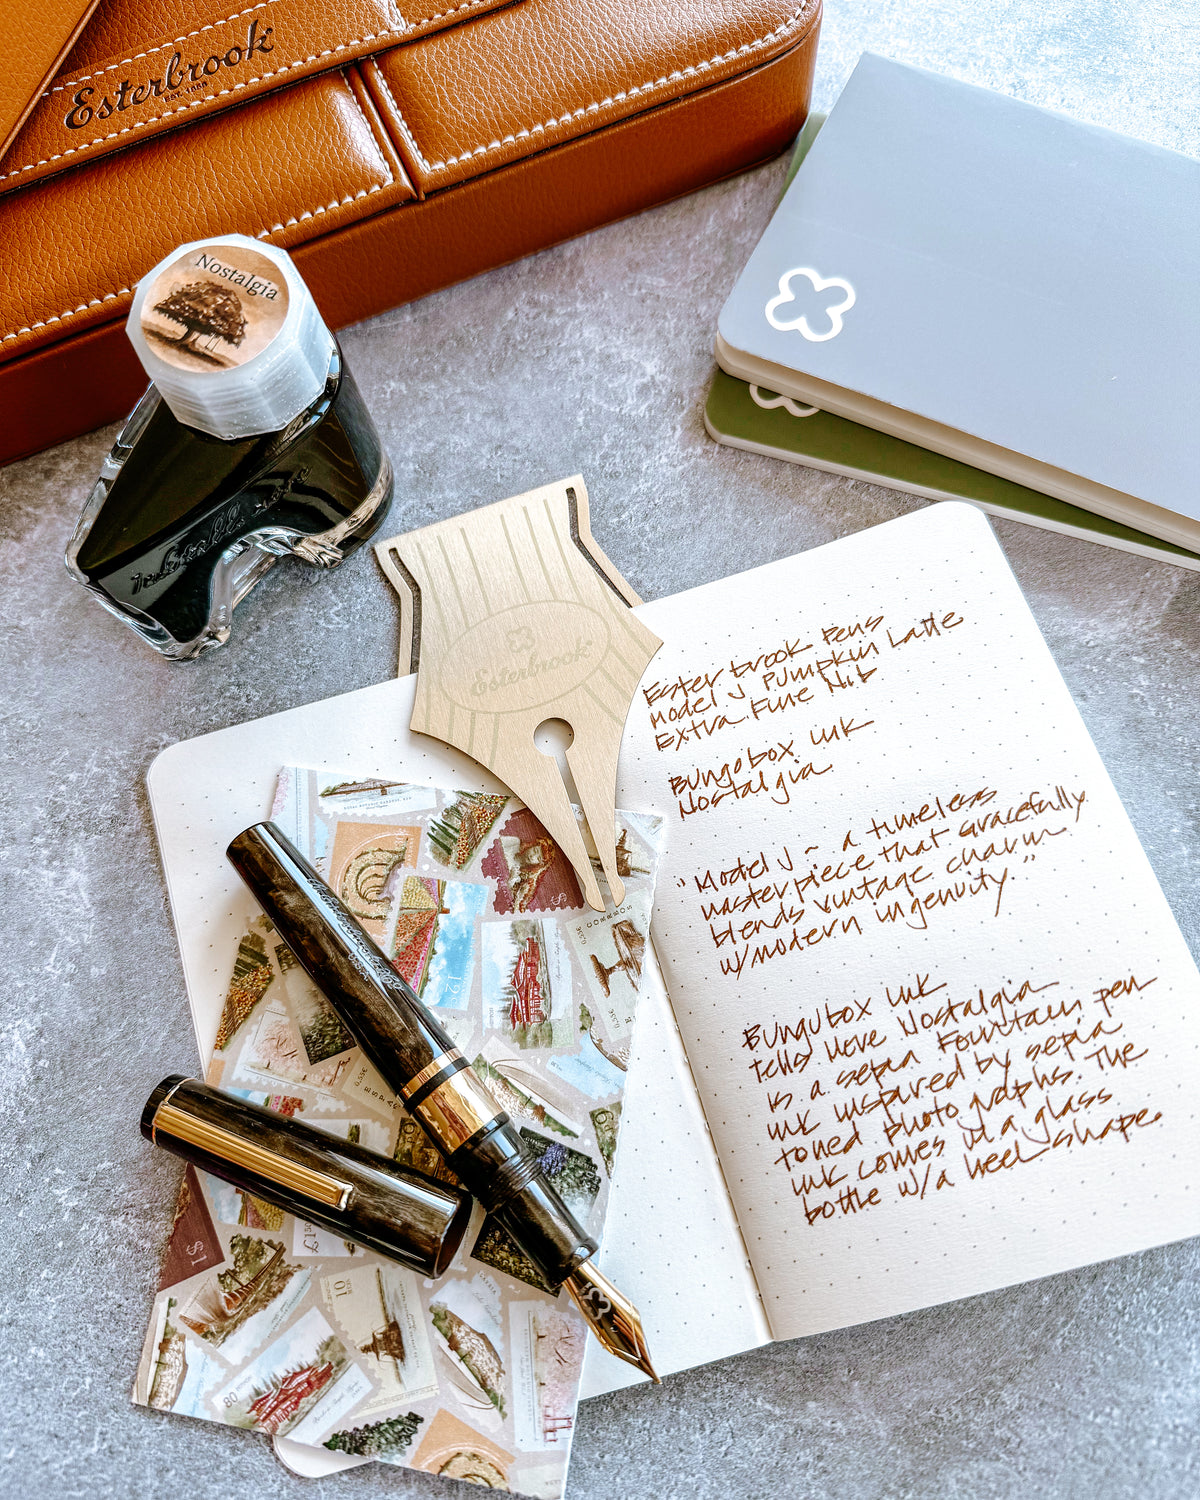 Esterbrook
EST. 1858
Nostalgia
Esterbrook
Esterbrook Pens
Model J Pumpkin Latte
Extra Fine Nib
Bungobox ink
Nostalgia
"Model J ~ a timeless
masterpiece that gracefully
blends vintage charm
w/modern ingenuity."
Bungubox ink
tells Nostalgia
is a sepia Fountain pen
ink inspired by sepia
toned photographs. The
ink comes in a glass
bottle w/a heel shape.
CORREOS
$1
80
10